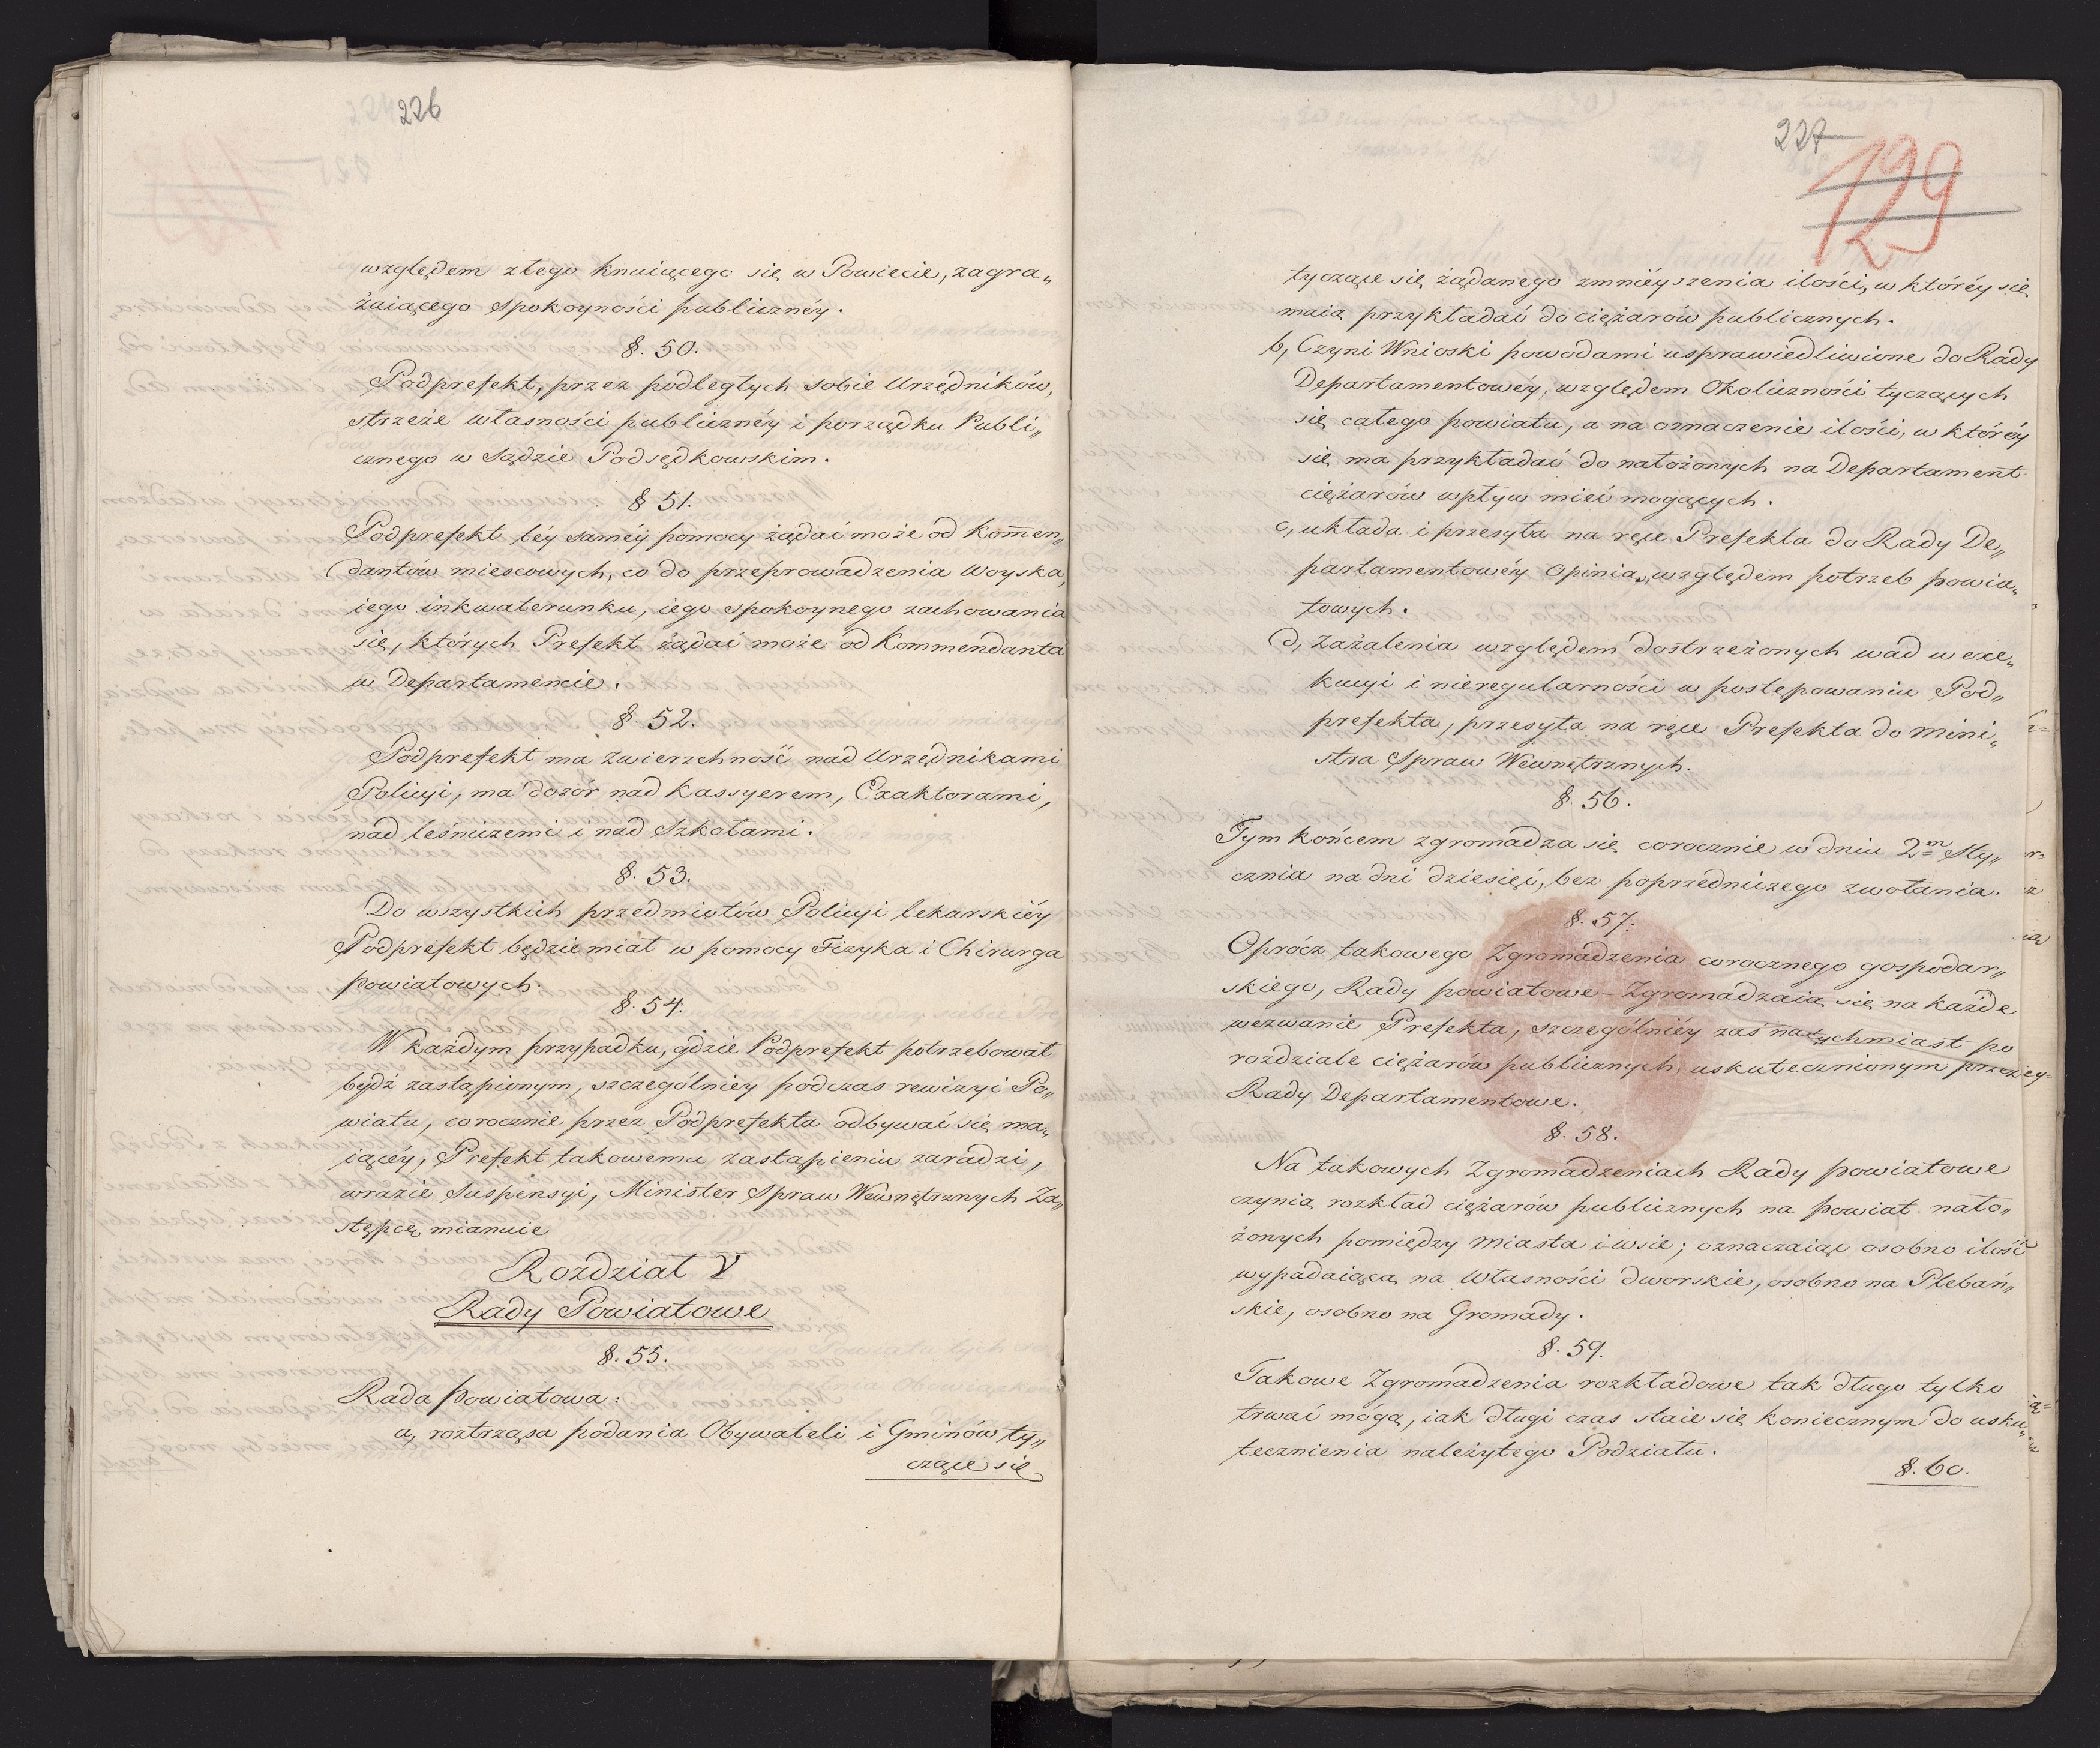 226
względem złego knuiącego się w Powiecie, zagra„
żaiącego spokoyności publicznéy.
§. 50.
Podprefekt, przez podległych sobie Urzędników,
strzeże własności publicznéy i porządku Publi„
cznego w Sądzie Podsędkowskim.
§ 51.
Podprefekt téy saméy pomocy żądać może od Kom̄en„
dantów miescowych, co do przeprowadzenia Woyska,
iego inkwaterunku, iego spokoynego zachowania
się, których Prefekt żądać może od Kommendanta
w Departamencie.
§. 52.
Podprefekt ma zwierzchność nad Urzędnikami
Policyi, ma dozór nad Kassyerem, Exaktorami,
nad leśniczemi i nad Szkołami.
§. 53.
Do wszystkich przedmiotów Policyi lekarskiéy
Podprefekt będzie miał w pomocy Fizyka i Chirurga
powiatowych.
§. 54.
W każdym przypadku, gdzie Podprefekt potrzebował
bydź zastąpionym, szczególniey podczas rewizyi Po„
wiatu, corocznie przez Podprefekta odbywać się ma„
iącéy, Prefekt takowemu zastąpieniu zaradzi,
wrazie Suspensyi, Minister Spraw Wewnętrznych Za„
stępcę mianuie
Rozdział V
Rady Powiatowe
§. 55.
Rada powiatowa:
a, roztrząsa podania Obywateli i Gminów ty„
czące się
227
129
tyczące się żądanego zmniéyszenia ilości, w któréy się
maią przykładać do ciężarów publicznych.
b, Czyni Wnioski powodami usprawiedliwione do Rady
Departamentowéy, względem Okoliczności tyczących
się całego powiatu, a na oznaczenie ilości, w któréy
się ma przykładać do nałożonych na Departament
ciężarów wpływ mieć mogących.
c, układa i przesyła na ręce Prefekta do Rady De„
partamentowéy Opinią, względem potrzeb powia„
towych.
d, zażalenia względem dostrzeżonych wad w exe„
kucyi i nieregularności w postępowaniu Pod„
prefekta, przesyła na ręce Prefekta do Mini„
stra Spraw Wewnętrznych.
§. 56.
Tym końcem zgromadza się corocznie w dniu 2m Sty„
cznia na dni dziesięć, bez poprzedniczego zwołania.
§. 57.
Oprócz takowego Zgromadzenia corocznego gospodar„
skiego, Rady powiatowe Zgromadzaią się na każde
wezwanie Prefekta, szczególniéy zaś natychmiast po
rozdziale ciężarów publicznych, uskutecznionym przez
Rady Departamentowe.
§. 58.
Na takowych Zgromadzeniach Rady powiatowe
czynią rozkład ciężarów publicznych na powiat nało„
żonych pomiędzy Miasta i wsie; oznaczaiąc osobno ilość
wypadaiącą na Własności dworskie, osobno na Plebań„
skie, osobno na Gromady.
§. 59.
Takowe Zgromadzenia rozkładowe tak długo tylko
trwać mogą, iak długi czas staie się koniecznym do usku„
tecznienia należytego Podziału.
§. 60.